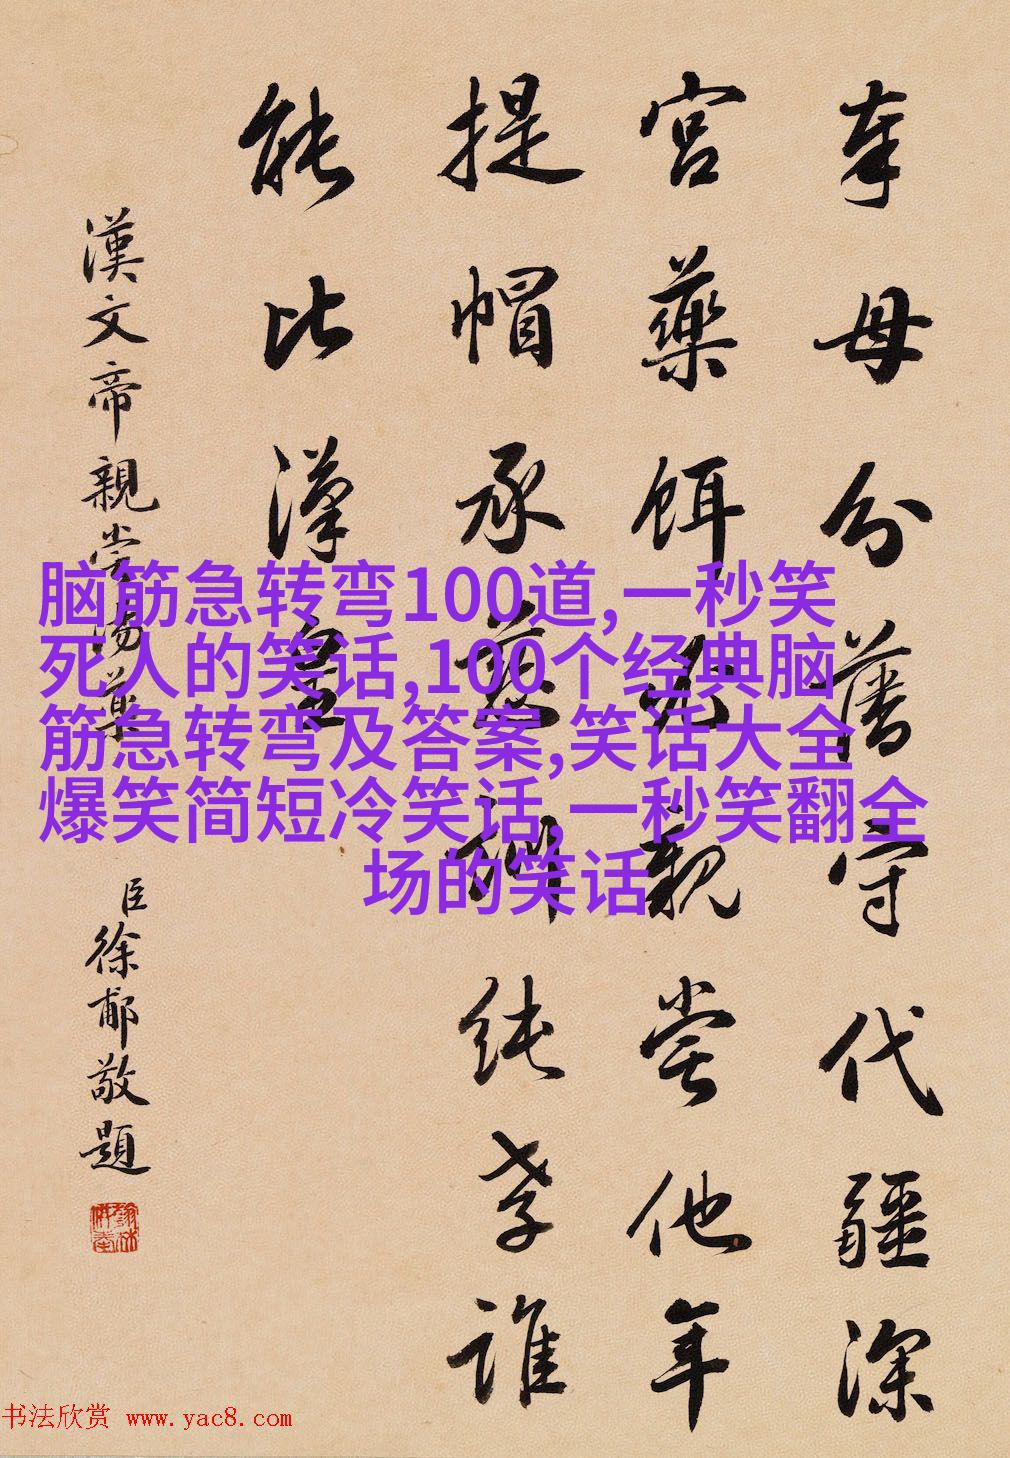 奉母分藩守代疆深
宮藥餌親嘗他年
提帽承慈訓純孝誰
能比漢皇
漢文帝親嘗湯藥
臣徐郙敬題
脑筋急转弯100道,一秒笑
死人的笑话,100个经典脑
筋急转弯及答案,笑话大全
爆笑简短冷笑话,一秒笑翻全
场的笑话
书法欣赏 www.yac8.com